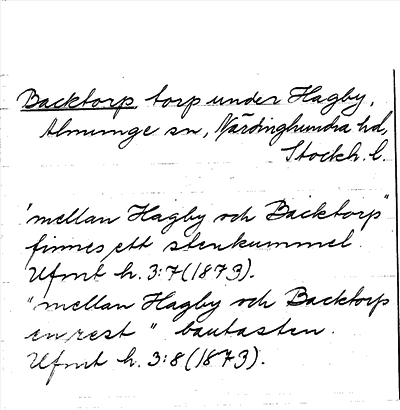 Backtorp, torp under Hagby,
Almunge sn, Närdinghundra hd,
Stockh. l.
"mellan Hagby och Backtorp"
finnes ett stenkummel.
Ufmt h. 3:7 (1873).
"mellan Hagby och Backtorp
en rest " bautasten.
Ufmt h. 3:8 (1873).